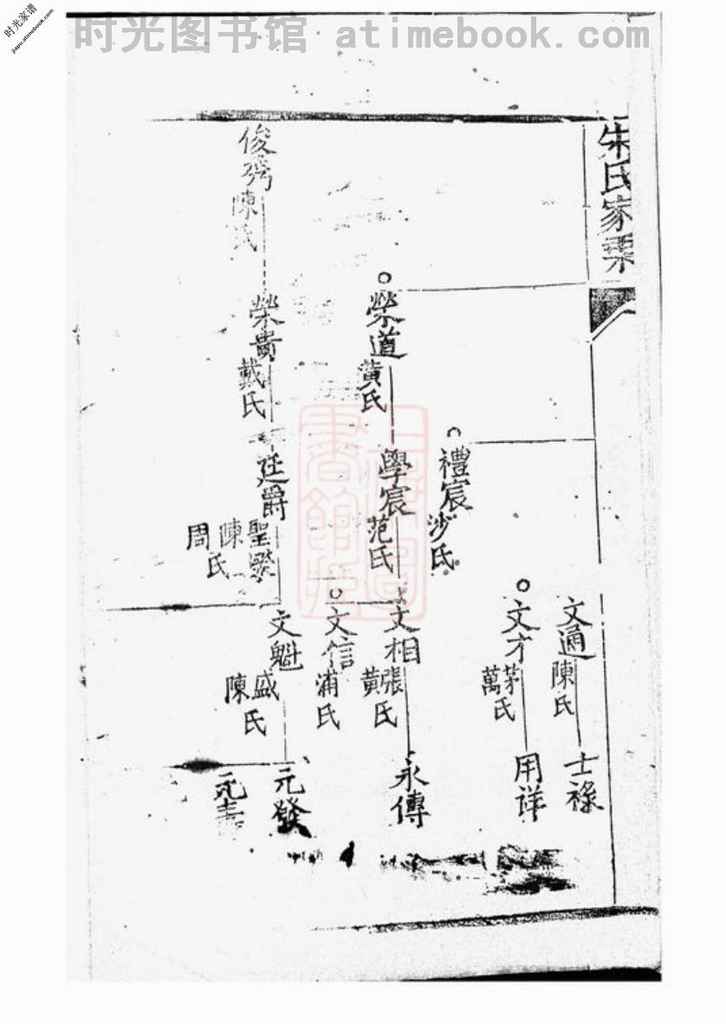 时光家谱
jiapu.atimebook.com
时光图书馆 atimebook.com
朱氏家乘
俊
陳氏
榮道
黃氏
榮貴
戴氏
禮宸
沙氏
學宸
范氏
廷爵
聖
陳
周氏
文通
陳氏
文才
茅
萬氏
文相
張
黃氏
文信
浦氏
文魁
盛
陳氏
士祿
用詳
永傳
元發
元